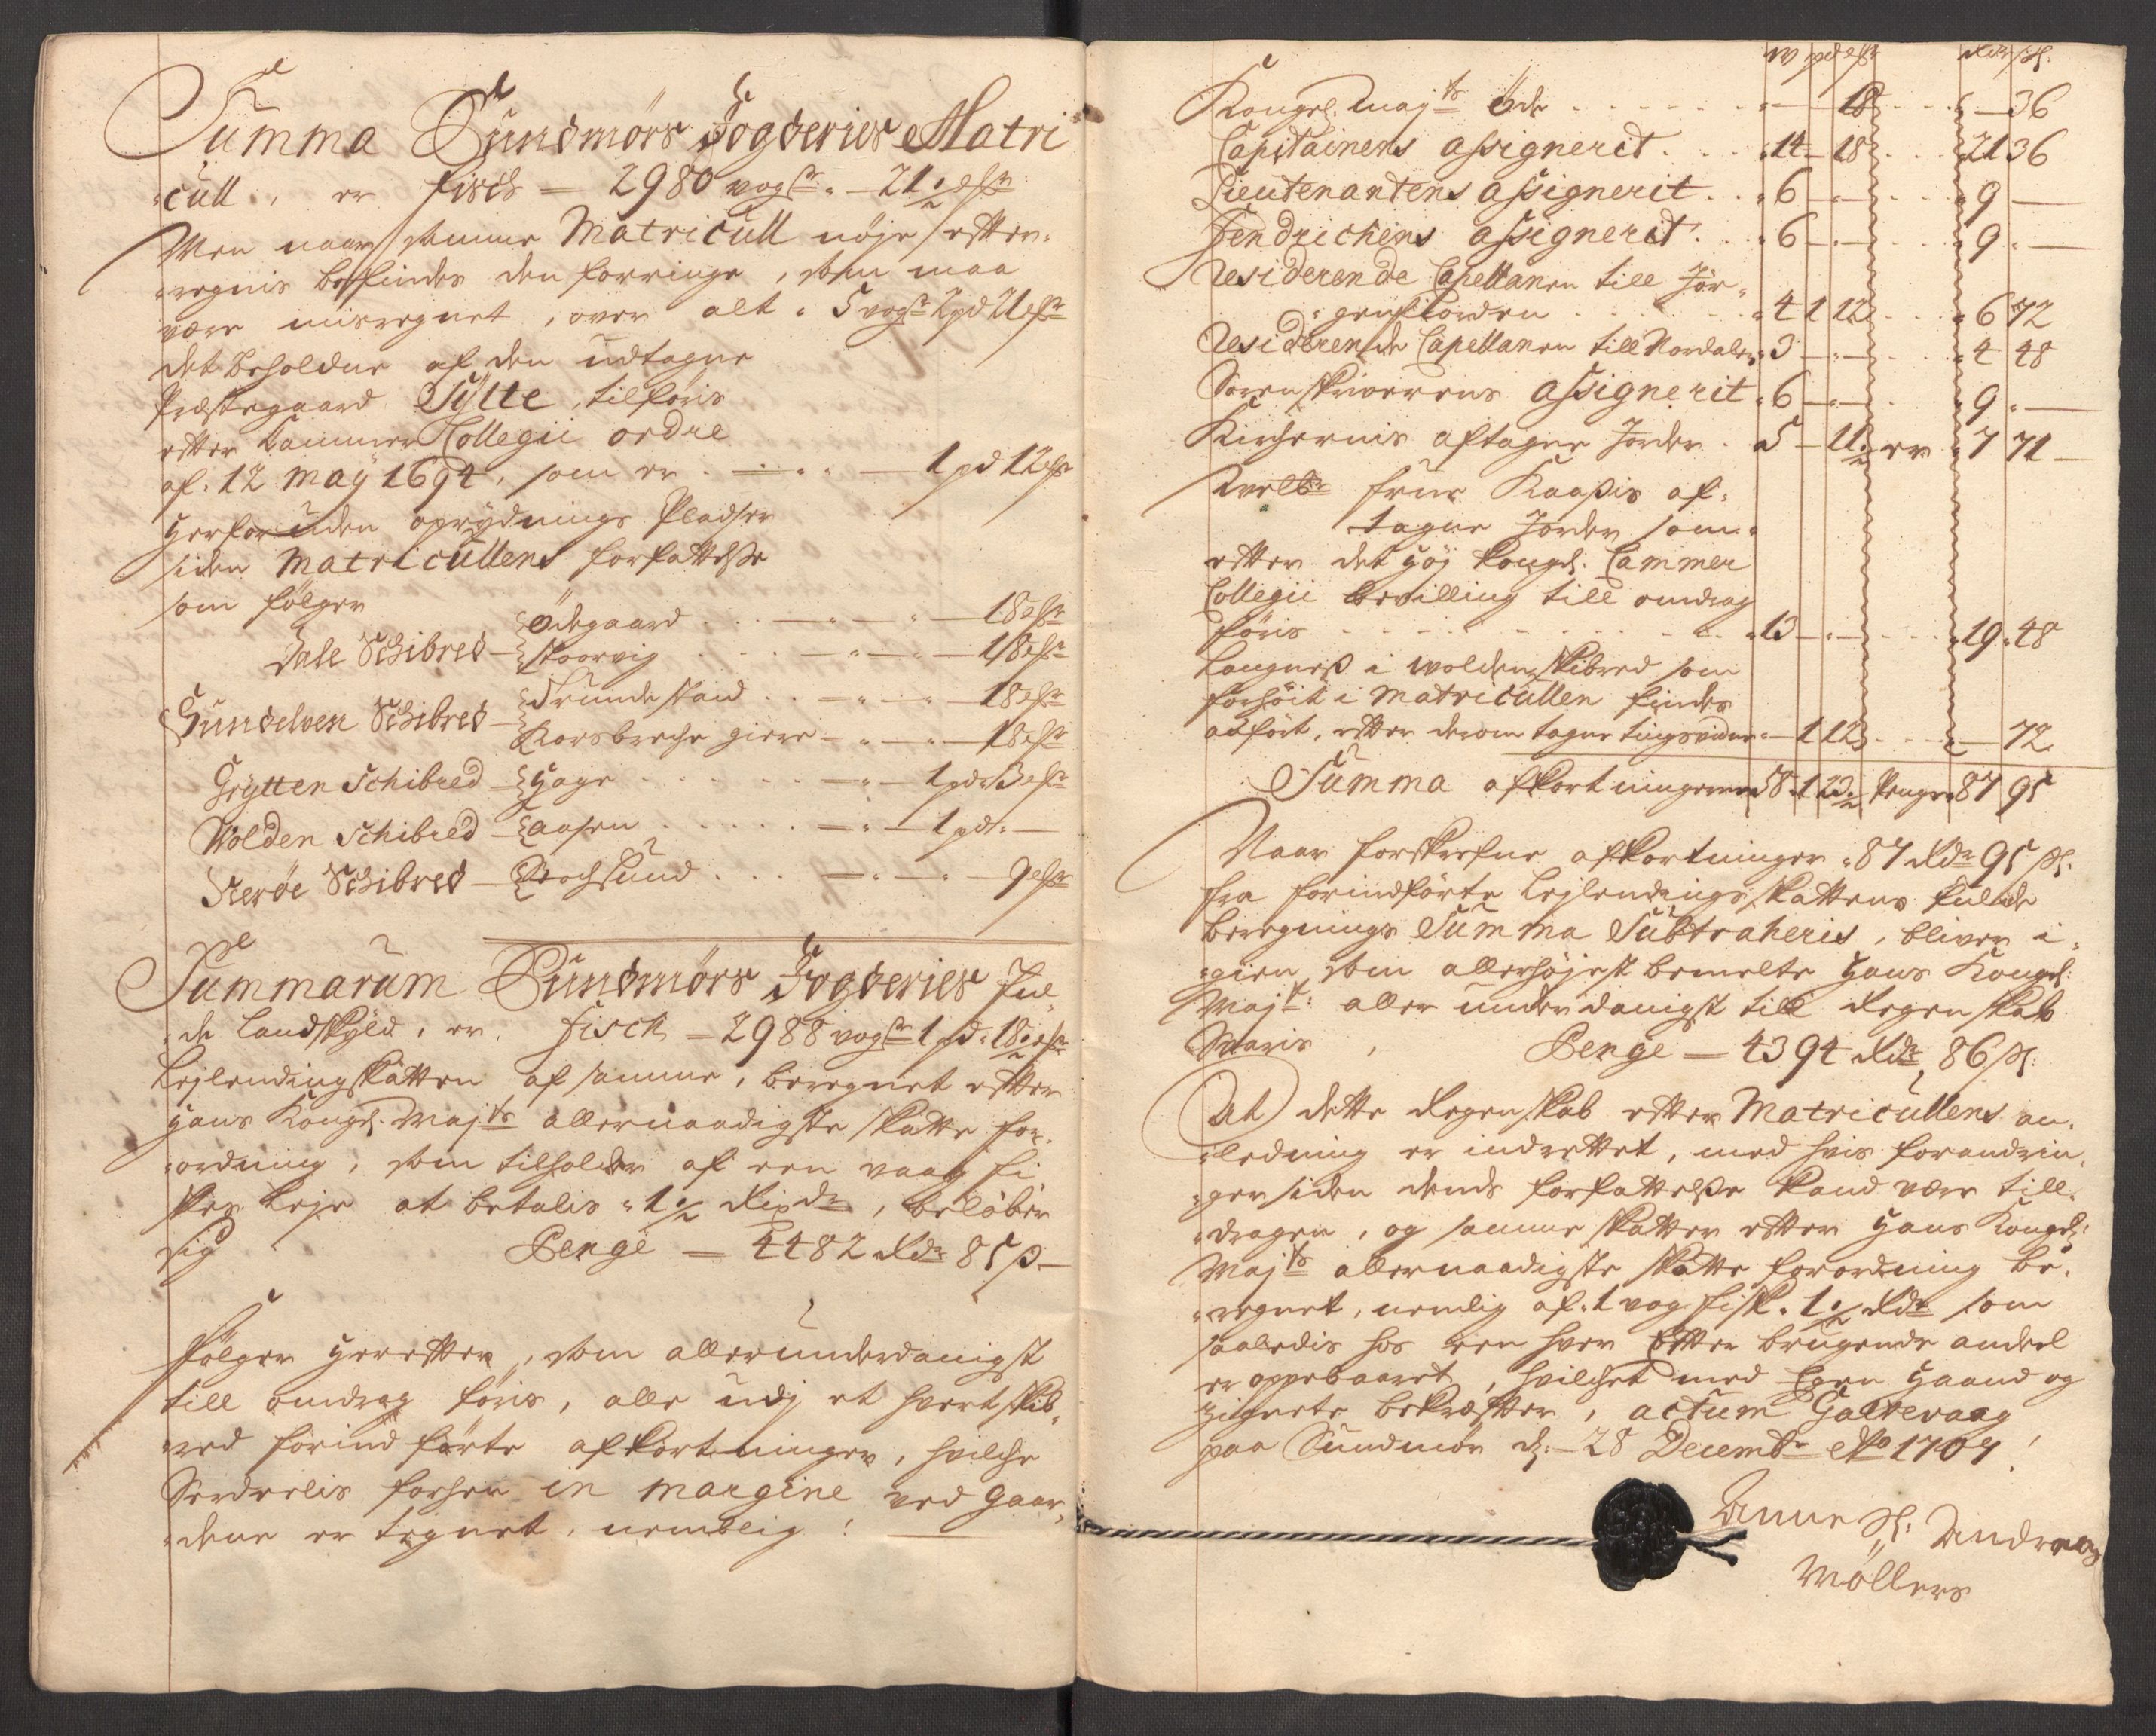 Summa Sundmörs Fogderies Matri
cull, er fisch — 2980 vog — 21½
Men naar samme Matricull nöje efter
regnis befindes den forringe, som maa
være misregnet, over alt 5 vog 2 pd 21
det beholdne af den udtagne
Præstegaard Sylte, tilföris
efter Cammer Collegii ordre
af 12 May 1694, som er — 1 pd 12
Herforuden oprydnings Pladser
siden Matricullens forfattelsse
som fölger
Dale Schibred — Ödegaard — 18
Stoorvig — 18
Sundelven Schibred — 18
Korsbreche giere — 18
Grytten Schibred — Hage — 1 pd 3
Wolden Schibred — Aasen — 1 pd —
Herröe Schibred — 9
Summarum Sundmörs Fogderies Ful
de Landskyld, er fisch — 2988 vog 1 pd 18½
Lejlendingskatten af samme, beregnet efter
Hans Kongl. Majts allernaadigste skatte for
ordning, som tilholder af een vaag fi
skes Leje at betalis 1½ Rixdr, belöber
sig Penge — 4482 Rdr 85 s
Fölger Herefter, som allerunderdanigst
till omdrag föris, alle udj et hvert skib
red forind förte afkortninger, hvilche
Serdeelis forhen in margine ved gaar
dene er tegnet, nemblig!
Kongl. Majts Öde — 18 — 36
Capitainens assignerit — 14 — 18 — 21 36
Lieutenantens assignerit — 6 — 9 —
Fendrichens assignerit — 6 — 9 —
Residerende Capellanen till Jör
gensfiorden — 4 1 12 — 6 72
Residerende Capellanen till Nordalen — 3 — 4 48
Sorenskriverens assignerit — 6 — 9 —
Kirchernis aftagne Jorder — 5 — 11½ er 7 71
Welb: frue Kaasis af
tagne Jorder som
efter det Höj Kongl. Cammer
Collegii bevilling till omdrag
föris — 13 — 19 48
Langnes i Wolden skibred som
forhöit i Matricullen findes
anfört, efter derom tagne tingsvidne — 1 12 — 72
Summa afkortningerne 58 1 23½ Penge 87 95
Naar forskrefne afkortninger 87 Rdr 95 s
fra forindförte Lejlendings skattens fulde
beregnings Summa Subtraheris, bliver i
gien som allerhöjest bemelte Hans Kongl.
Majt: aller underdanigst till Regenskab
Svaris, Penge — 4394 Rdr 86 s
At dette Regenskab efter Matricullens an
ledning er indrettet, med hvis forandrin
ger siden dends forfattelsse kand være till
dragen, og samme skatter efter Hans Kongl:
Majts allernaadigste skatte forordning be
regnet, nemlig af 1 vog fisk 1½ Rdr som
saaledis hos een hver efter brugende andeel
er oppebaaret, hvilchet med Egen Haand og
Zignete bekræfter, actum Galtevaag
paa Sundmör d. 28 Decembr Ao 1707!
Anne Sl: Andreas
Möllers